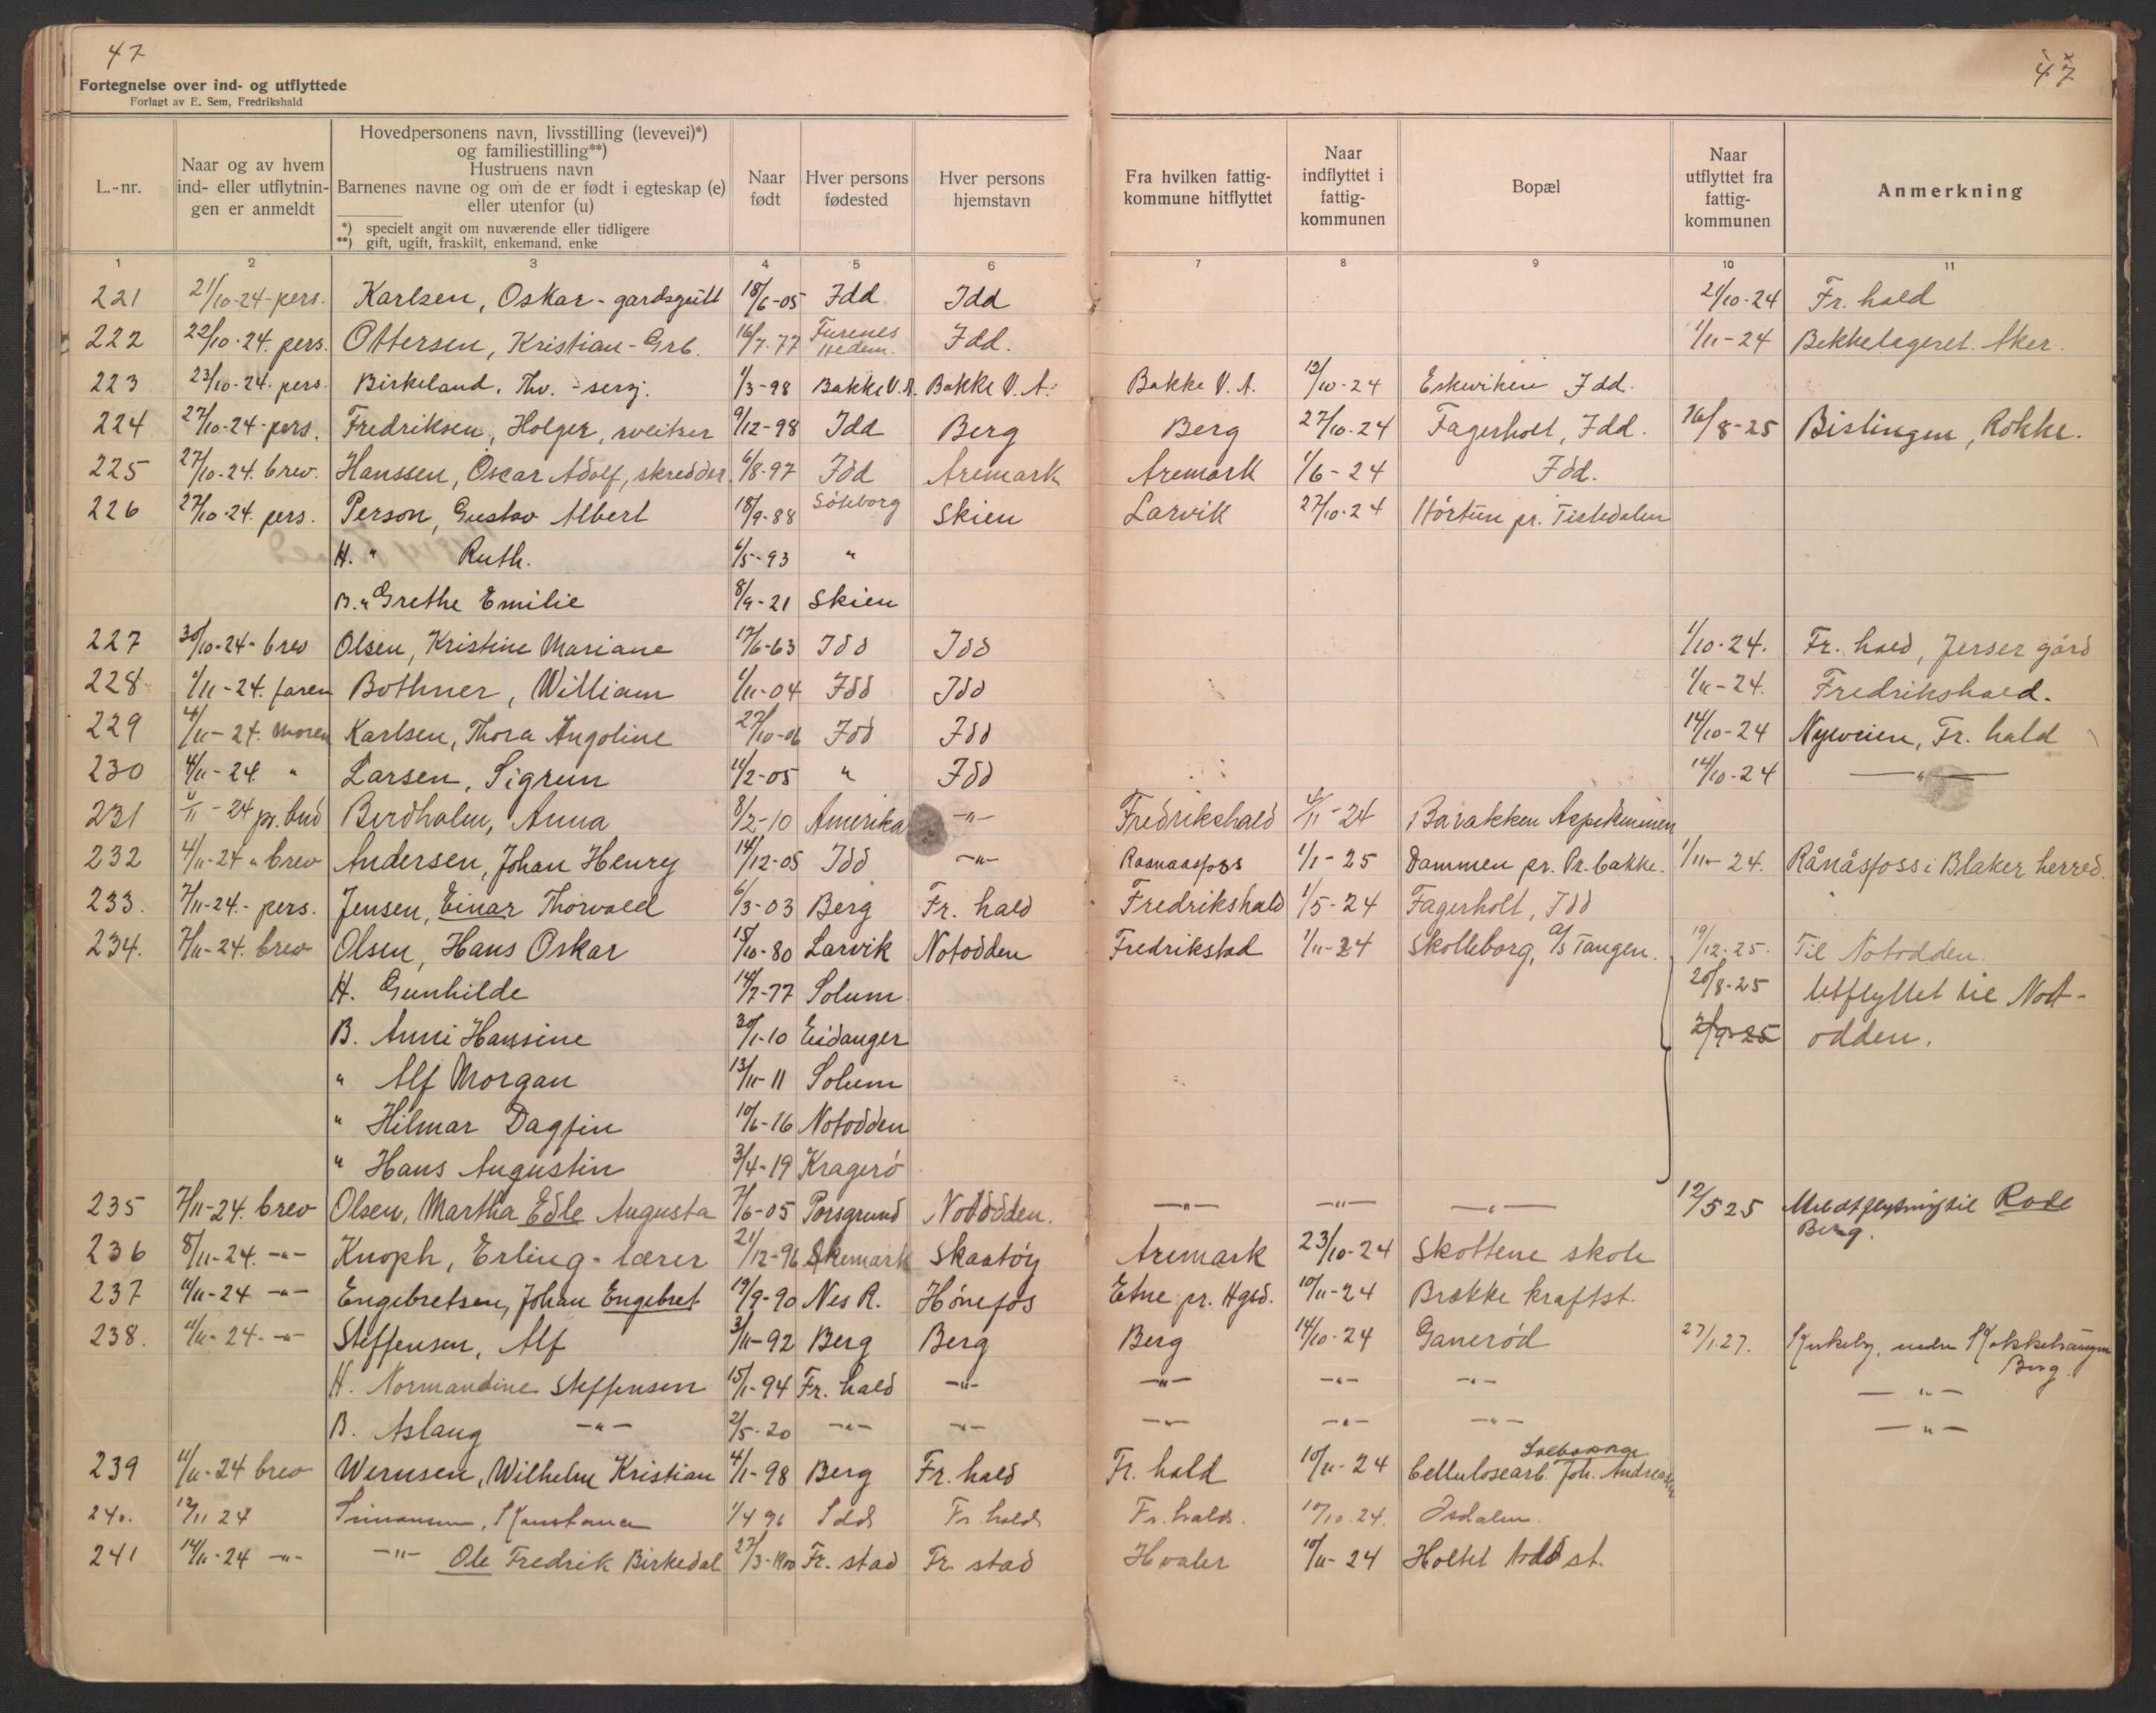 47
47
Fortegnelse over ind- og utflyttede
Forlagt av E. Sem, Fredrikshald
L.-nr.
Naar og av hvem ind- eller utflytnin- gen er anmeldt
Hovedpersonens navn, livsstilling (levevei)*)
og familiestilling**)
Hustruens navn
Barnenes navne og om de er født i egteskap (e)
eller utenfor (u)
*) specielt angit om nuværende eller tidligere
**) gift, ugift, fraskilt, enkemand, enke
Naar født
Hver persons fødested
Hver persons hjemstavn
Fra hvilken fattig- kommune hitflyttet
Naar indflyttet i fattig- kommunen
Bopæl
Naar utflyttet fra fattig- kommunen
Anmerkning
1 2 3 4 5 6 7 8 9 10 11
221 21/10-24-pers. Karlsen, Oskar - gardsgutt 18/6-05 Idd Idd 21/10-24 Fr. hald
222 22/10-24. pers. Ottersen, Kristian - Grb. 16/7-77 Furenes Hedem. Idd. 1/11-24 Bekkelageret. Aker.
223 23/10-24. pers. Birkeland, Thv. - serj. 1/3-98 Bakke V.A. Bakke V. A. Bakke V. A. 13/10-24 Eskeviken Idd.
224 27/10-24-pers. Fredriksen, Holger, sveitser 9/12-98 Idd Berg Berg 27/10-24 Fagerholt, Idd. 16/8-25 Bislingen, Rokke.
225 27/10-24. brev. Hanssen, Oscar Adolf, skredder 6/8-97 Idd Aremark Aremark 1/6-24 Idd.
226 27/10-24. pers. Person, Gustav Albert 18/9-88 Göteborg Skien Larvik 27/10-24 Hörtun pr. Tistedalen
H. " Ruth. 6/5-93 "
B. " Grethe Emilie 8/9-21 Skien
227 30/10-24-brev Olsen, Kristine Mariane 17/6-63 Idd Idd 1/10-24. Fr. hald, Jerser gård
228 1/11-24. faren Bothner, William 1/11-04 Idd Idd 1/11-24. Fredrikshald.
229 4/11-24. moren Karlsen, Thora Angoline 27/10-06 Idd Idd 14/10-24 Nyveien, Fr. hald
230 4/11-24. " Larsen, Sigrun 11/2-05 " Idd 14/10-24 — " —
231 4/11-24 pr. bud Berdholm, Anna 8/2-10 Amerika — " — Fredrikshald 4/11-24 Barakken Aspedammen
232 4/11-24 " brev Andersen, Johan Henry 14/12-05 Idd — " — Raanaasfoss 1/1-25 Dammen pr. Pr. bakke. 1/11-24. Rånåsfoss i Blaker herred.
233. 7/11-24.- pers. Jensen, Einar Thorvald 6/3-03 Berg Fr. hald Fredrikshald 1/5-24 Fagerholt, Idd
234. 7/11-24. brev Olsen, Hans Oskar 15/10-80 Larvik Notodden Fredrikstad 1/11-24 Skolleborg, a/s Tangen. 19/12-25. Til Notodden.
H. Gunhilde 14/7-77 Solum 20/8-25 Utflyttet til Not-
B. Anni Hansine 30/1-10 Eidanger 2/9-25 odden.
" Alf Morgan 13/11-11 Solum
" Hilmar Dagfin 10/6-16 Notodden
" Hans Augustin 3/4-19 Kragerö
235 7/11-24. brev Olsen, Martha Edle Augusta 7/6-05 Porsgrund Notodden. — " — — " — — " — 12/5 25 til Rode
Berg.
236 8/11-24. — " — Knoph, Erling - lærer 21/12-96 Skaatöy Aremark 23/10-24 Skottene skole
237 11/11-24 — " — Engebretsen, Johan Engebret 19/9-90 Nes R. Hönefos Etne pr. Hgsd. 10/11-24 Brække kraftst.
238. 11/11-24. — " — Steffensen, Alf 3/11-92 Berg Berg Berg 14/10-24 Ganerød 27/1 27. Kirkeby, nedre
Berg.
H. Normandine Steffensen 15/1-94 Fr. hald — " — — " — — " — — " — — " —
B. Aslaug — " — 2/5-20 — " — — " — — " — — " — — " — — " —
239 11/11-24 brev Wernsen, Wilhelm Kristian 4/1-98 Berg Fr. hald Fr. hald 10/11-24 Solbakke
Cellulosearb. Joh. Andreasen
240. 12/11 24 Simonsen, 1/4 96 Idd Fr. hald Fr. hald. 10/10 24. Isdalen.
241 14/11-24 — " — — " — Ole Fredrik Birkedal 27/3-1900 Fr. stad Fr. stad Hvaler 10/11-24 Holtet st.